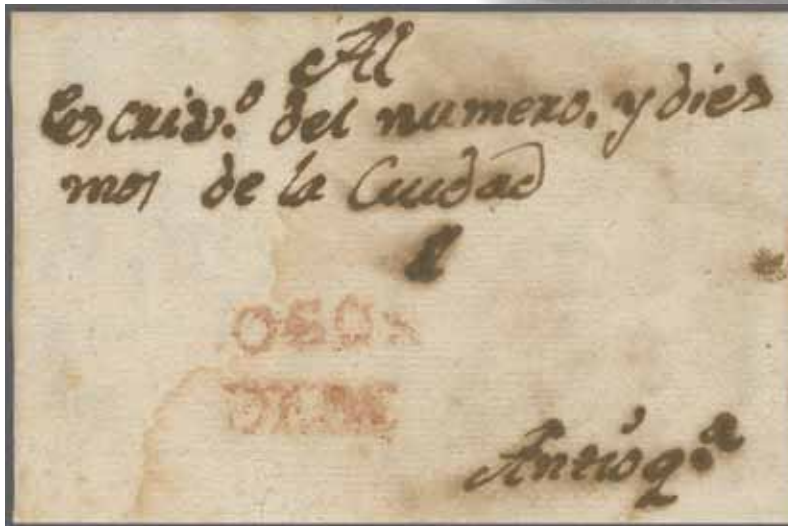 Al
Escriv.º del numero, y dies
mos de la Ciudad
OSOS
DEBE
Antioq.ª